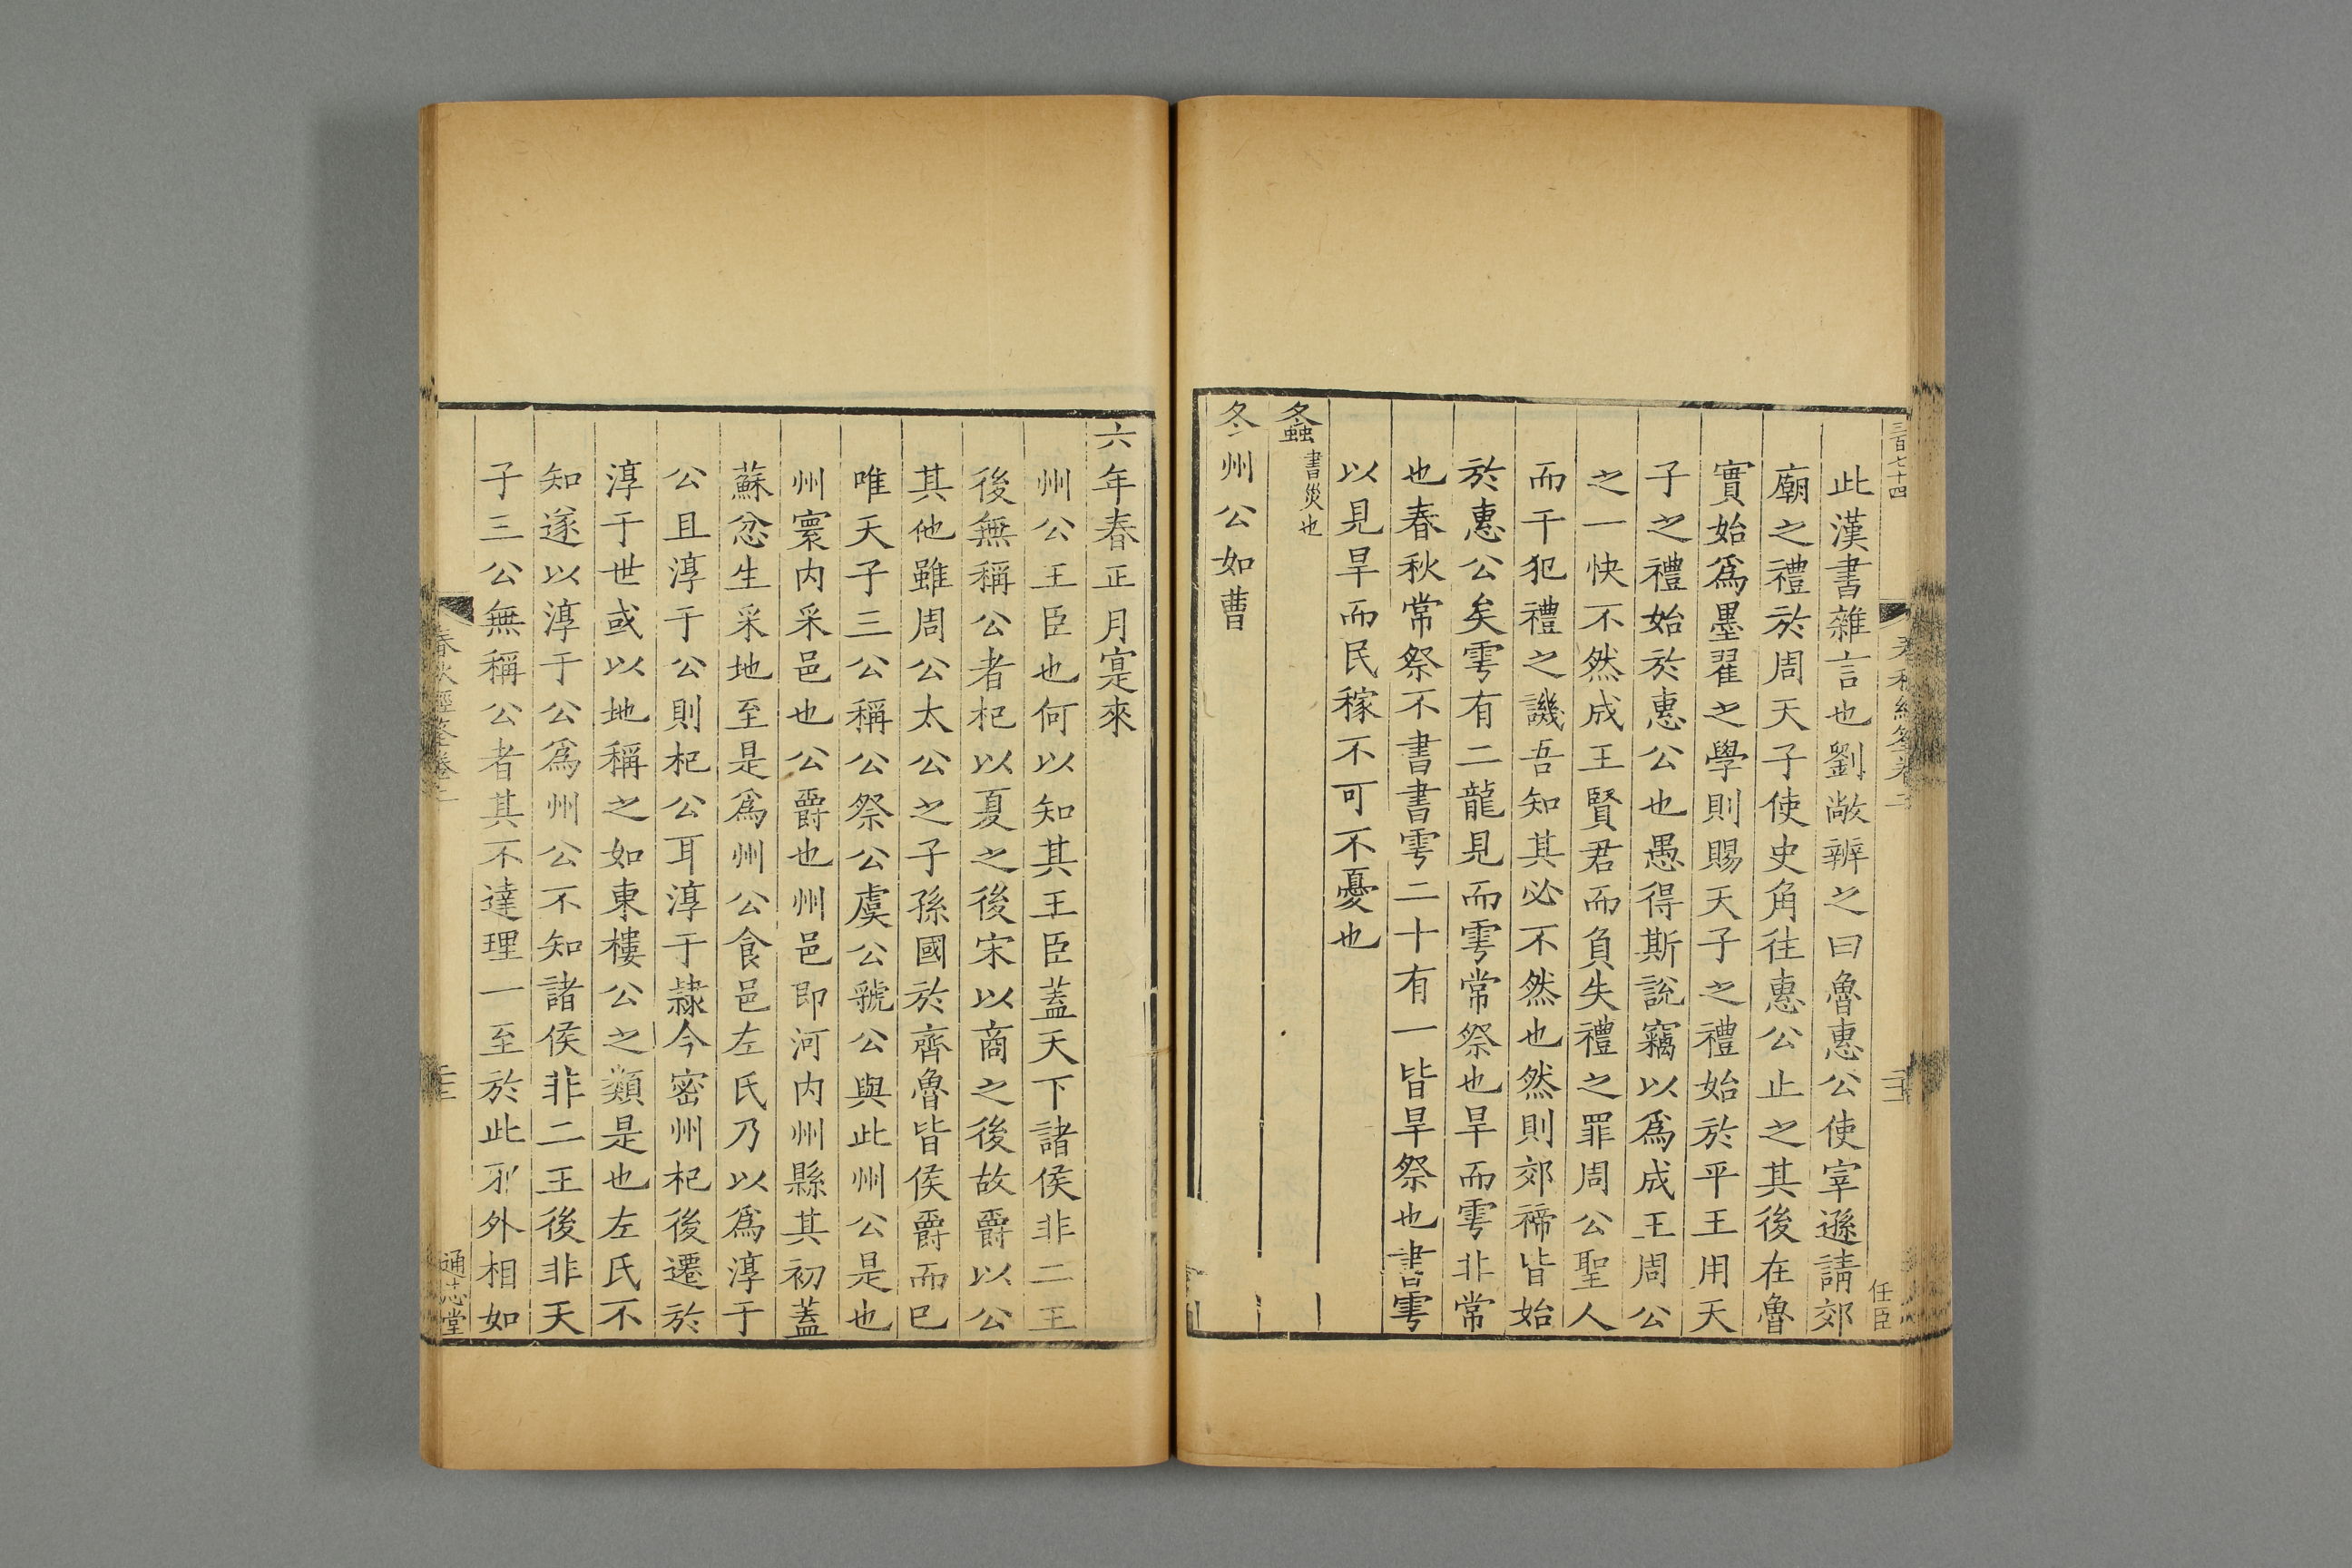 三百七十四
任臣
此漢書雜言也劉敞辨之曰魯惠公使宰遜請郊
廟之禮於周天子使史角往惠公止之其後在魯
實始爲墨翟之學則賜天子之禮始於平王用天
子之禮始於惠公也愚得斯說竊以爲成王周公
之一快不然成王賢君而負失禮之罪周公聖人
而干犯禮之譏吾知其必不然也然則郊禘皆始
於惠公矣雩有二龍見而雩常祭也旱而雩非常
也春秋常祭不書書雩二十有一皆旱祭也書雩
以見旱而民稼不可不憂也
螽書災也
冬州公如曹
六年春正月寔來
州公王臣也何以知其王臣蓋天下諸侯非二王
後無稱公者杞以夏之後宋以商之後故爵以公
其他雖周公太公之子孫國於齊魯皆侯爵而已
唯天子三公稱公祭公虞公虢公與此州公是也
州寰内采邑也公爵也州邑即河内州縣其初蓋
蘇忿生采地至是爲州公食邑左氏乃以爲淳于
公且淳于公則杞公耳淳于隷今密州杞後遷於
淳于世或以地稱之如東樓公之類是也左氏不
知遂以淳于公爲州公不知諸侯非二王後非天
子三公無稱公者其不達理一至於此邪外相如
春秋經筌卷二
通志堂